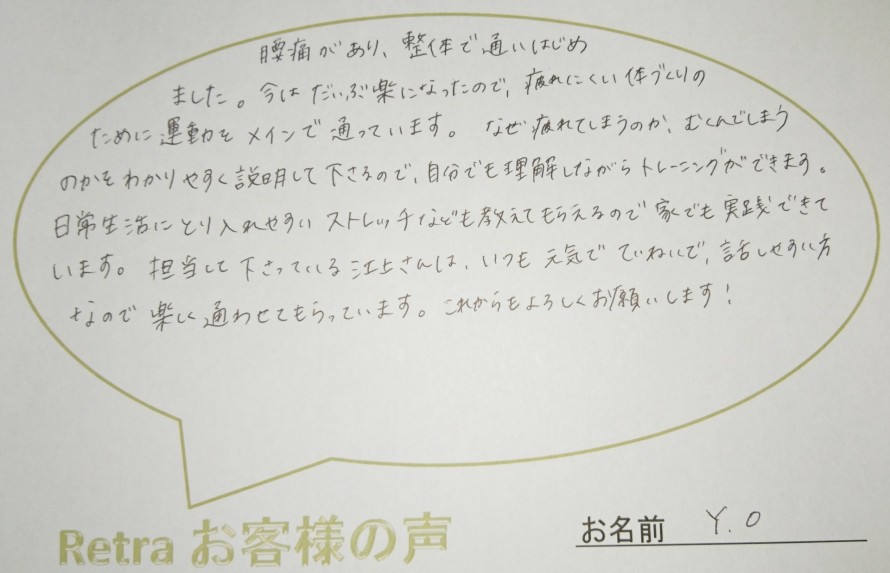 腰痛があり、整体で通いはじめ
ました。今はだいぶ楽になったので、疲れにくい体づくりの
ために運動をメインで通っています。なぜ疲れてしまうのか、むくんでしまう
のかをわかりやすく説明して下さるので、自分でも理解しながらトレーニングができます。
日常生活にとり入れやすいストレッチなども教えてもらえるので家でも実践できて
います。担当して下さっている江上さんは、いつも元気でていねいで、話しやすい方
なので楽しく通わせてもらっています。これからもよろしくお願いします！
Retra お客様の声
お名前 Y.O